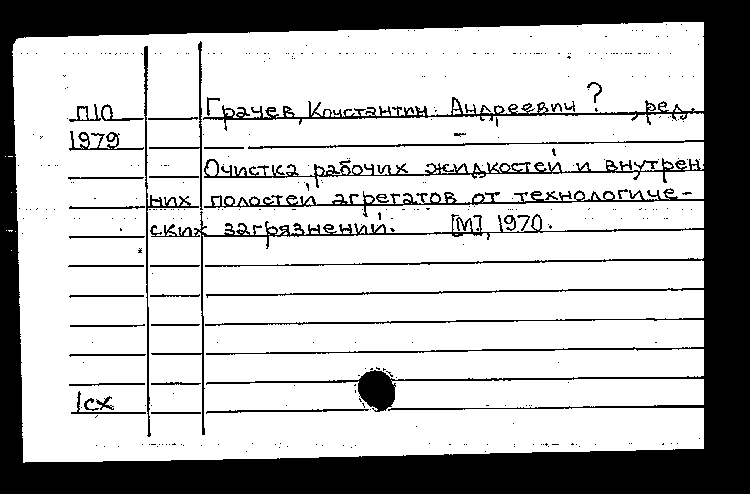 П10 Грачев, Константин Андреевич ?, ред.
1979
Очистка рабочих жидкостей и внутрен
них полостей агрегатов от технологиче-
ских загрязнений. [М], 1970.
1сх